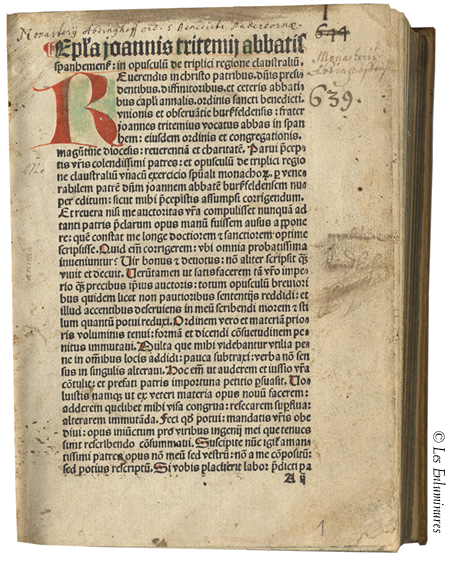 Monasterij Abdinghoff ord. S. Benedicti Paderbornæ
644
Epl'a joannis tritemij abbatis
spanhemeñ: in opusculũ de triplici regione claustraliũ.
Reuerendis in christo patribus. dñis presi
dentibus. diffinitoribus. et ceteris abbati
bus capl'i annalis. ordinis sancti benedicti.
vnionis et obseruãtie burßfeldensis: frater
joannes tritemius vocatus abbas in span
hem: eiusdem ordinis et congregationis.
magũtine diocesis: reuerentiã et charitatẽ. Parui p̃cep
tis vr̃is colendissimi patres: et opusculũ de triplici regi
one claustraliũ vnacũ exercicio spũali monachoꝝ. ꝑ vene
rabilem patrẽ dñm joannem abbatẽ burßfeldensem nu
per editum: sicut mihi p̃cepistis assumpsi corrigendum.
Et reuera nisi me auctoritas vr̃a compulisset nunquã ad
tanti patris p̃clarum opus manũ fuissem ausus apponе
re: quẽ constat me longe doctiorem et sanctiorem optime
scripsisse. Quid em̃ corrigerem: vbi omnia probatissima
inueniuntur? Vir bonus et deuotus: nõ aliter scripsit qз
vixit et docuit. Verũtamen ut satisfacerem tã vr̃o impe
rio qз precibus ip̃ius auctoris: totum opusculũ breuiori
bus quidem licet non paucioribus sententijs reddidi: et
illud accentibus deseruiens in meũ scribendi morem et sti
lum quantũ potui reduxi. Ordinem vero et materiã prio
ris voluminis tenui: formã et dicendi cõsuetudinem pe
nitus immutaui. Multa que mihi videbantur vtilia pe
ne in om̃ibus locis addidi: pauca subtraxi: verba nõ sen
sus in singulis alteraui. Hoc em̃ ut auderem et iussio vr̃a
cõtulit: et prefati patris importuna petitio p̃suasit. Vo
luistis namqз ut ex veteri materia opus nouũ facerem:
adderem quelibet mihi visa congrua: resecarem suꝑflua:
alterarem immutãda. Feci qđ potui: mandatis vr̃is obe
diui: opus iniũctum pro viribus ingenij mei que tenues
sunt rescribendo cõsummaui. Suscipite nũc igit̃ aman
tissimi patres opus nõ meũ sed vestrũ: nõ a me cõpositũ:
sed potius rescriptũ. Si vobis placuerit labor p̃dicti pa
A ij
Monasterij
Abdinghoff
639.
1
© Les Enluminures